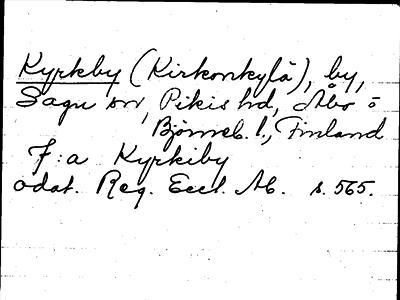 Kyrkby (Kirkonkylä), by,
Sagu sn, Pikis hd, Åbo o
Björneb. l., Finland
F:a Kyrkiby
odat. Reg. Eccl. Ab. s. 565.